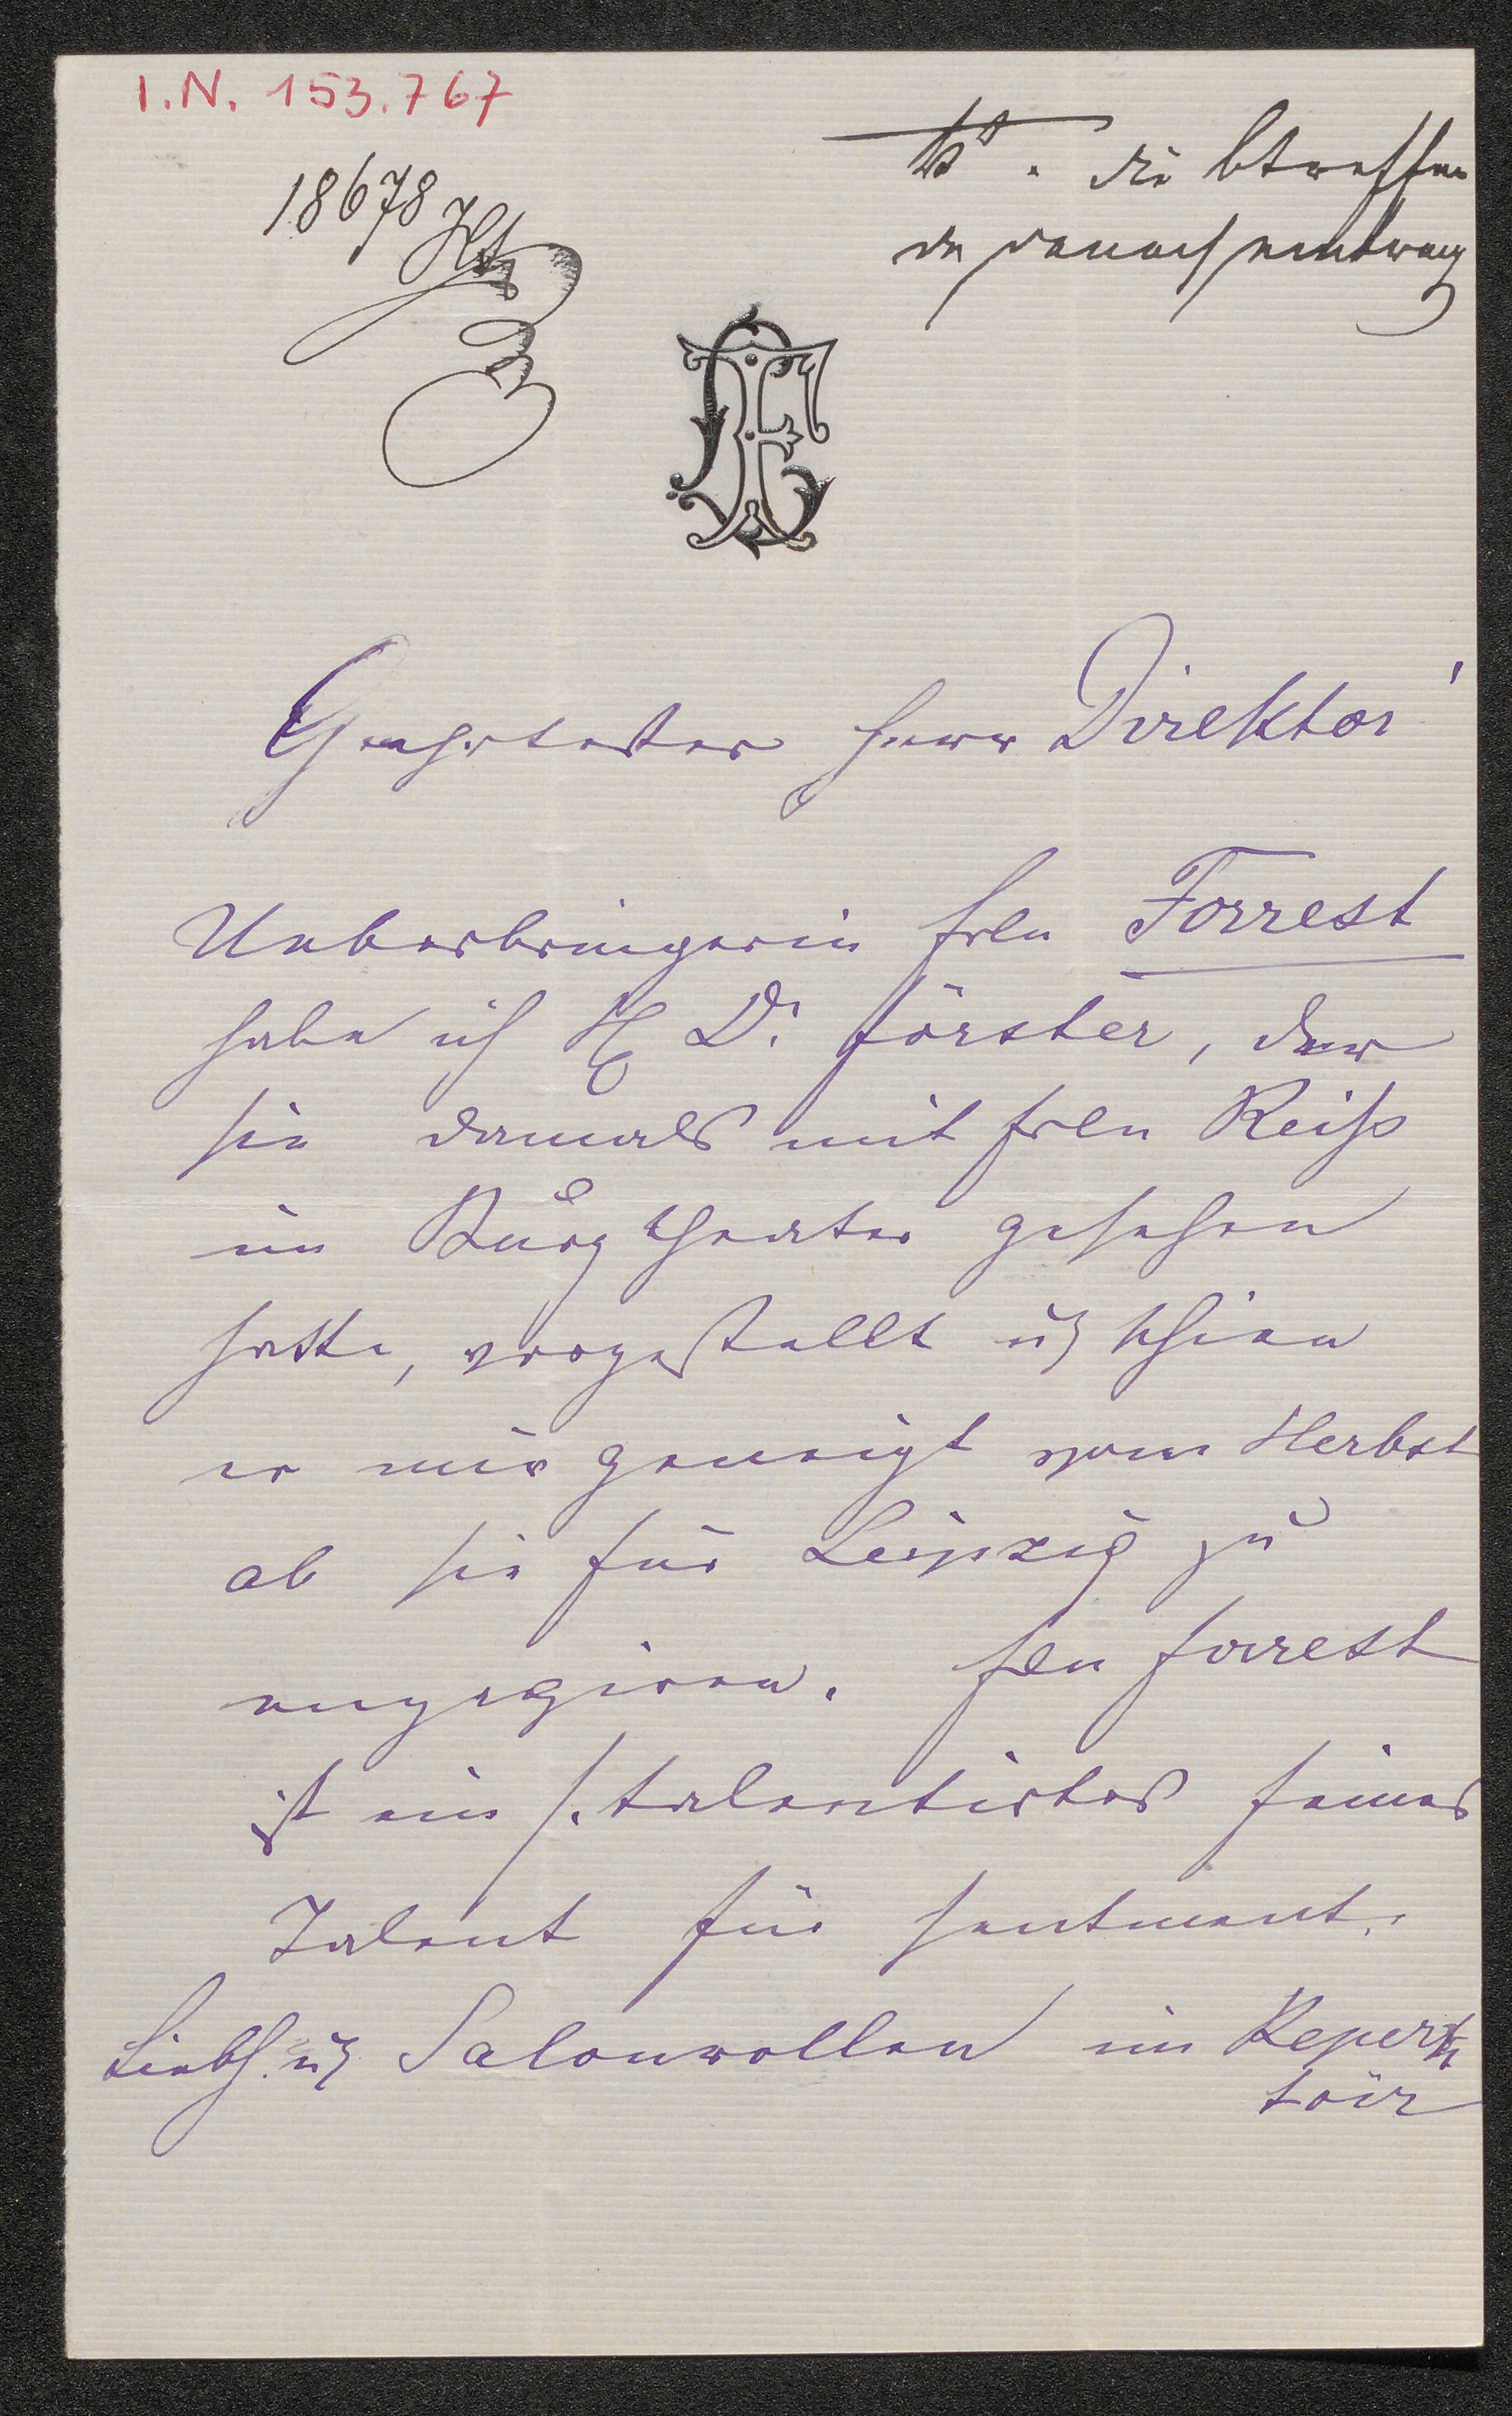 I.N. 153.767
18678
die
Geehrtester Herr Direktor!
Ueberbringerin Frln Forrest
habe ich H D. Förster, der
sie damals mit Frln Reiß
im Burgtheater gesehen
hatte, vorgestellt u schien
er mir geneigt vom Herbst
ab sie für Leipzig zu
engagiren. Frln Forrest
ist ein s. talentirtes feines
Talent für sentment.
Liebh. u Salonrollen im Reper
toir